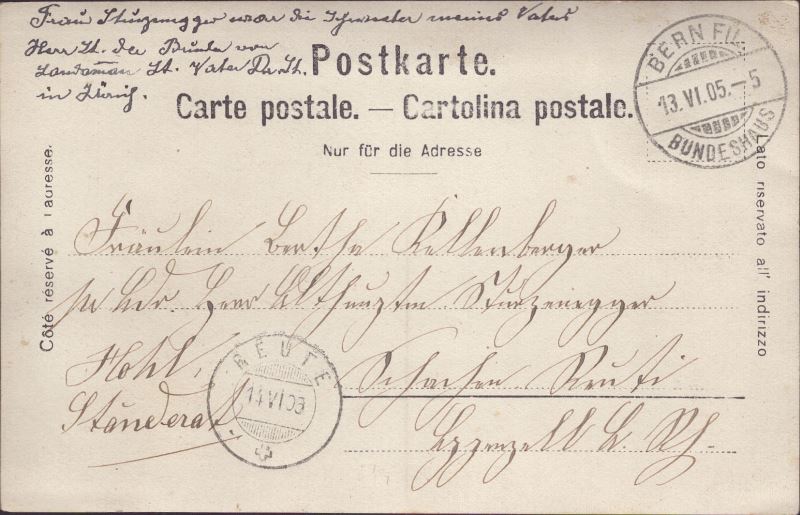 Frau Sturzenegger war die Schwester meines Vaters
Herr St. der Bruder von
Landaman St. Vater Dr. St.
in Zürich.
Postkarte.
Carte postale. — Cartolina postale.
Nur für die Adresse
BERN FIL.
13.VI.05.–5
BUNDESHAUS
Côté réservé à l'adresse.
Lato riservato all' indirizzo
Fräulein Bertha Kellenberger
p. Adr. Herr Althauptm Sturzenegger
Hohl, Schachen Reuti
Standerat. Appenzell A. Rh.
REUTE
14 VI 05